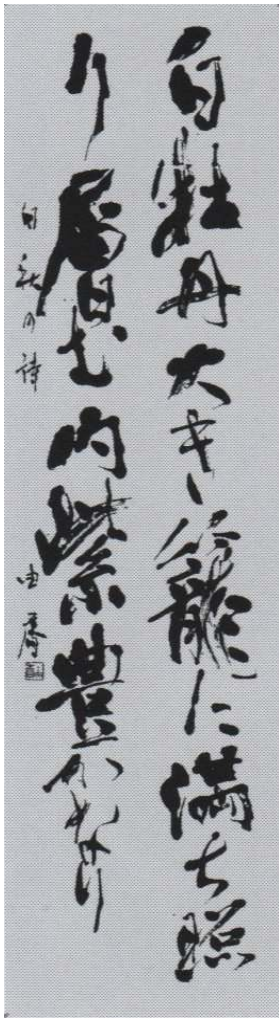 白牡丹大き籠に満ち照
り層む内紫豊かなり
白秋の詩